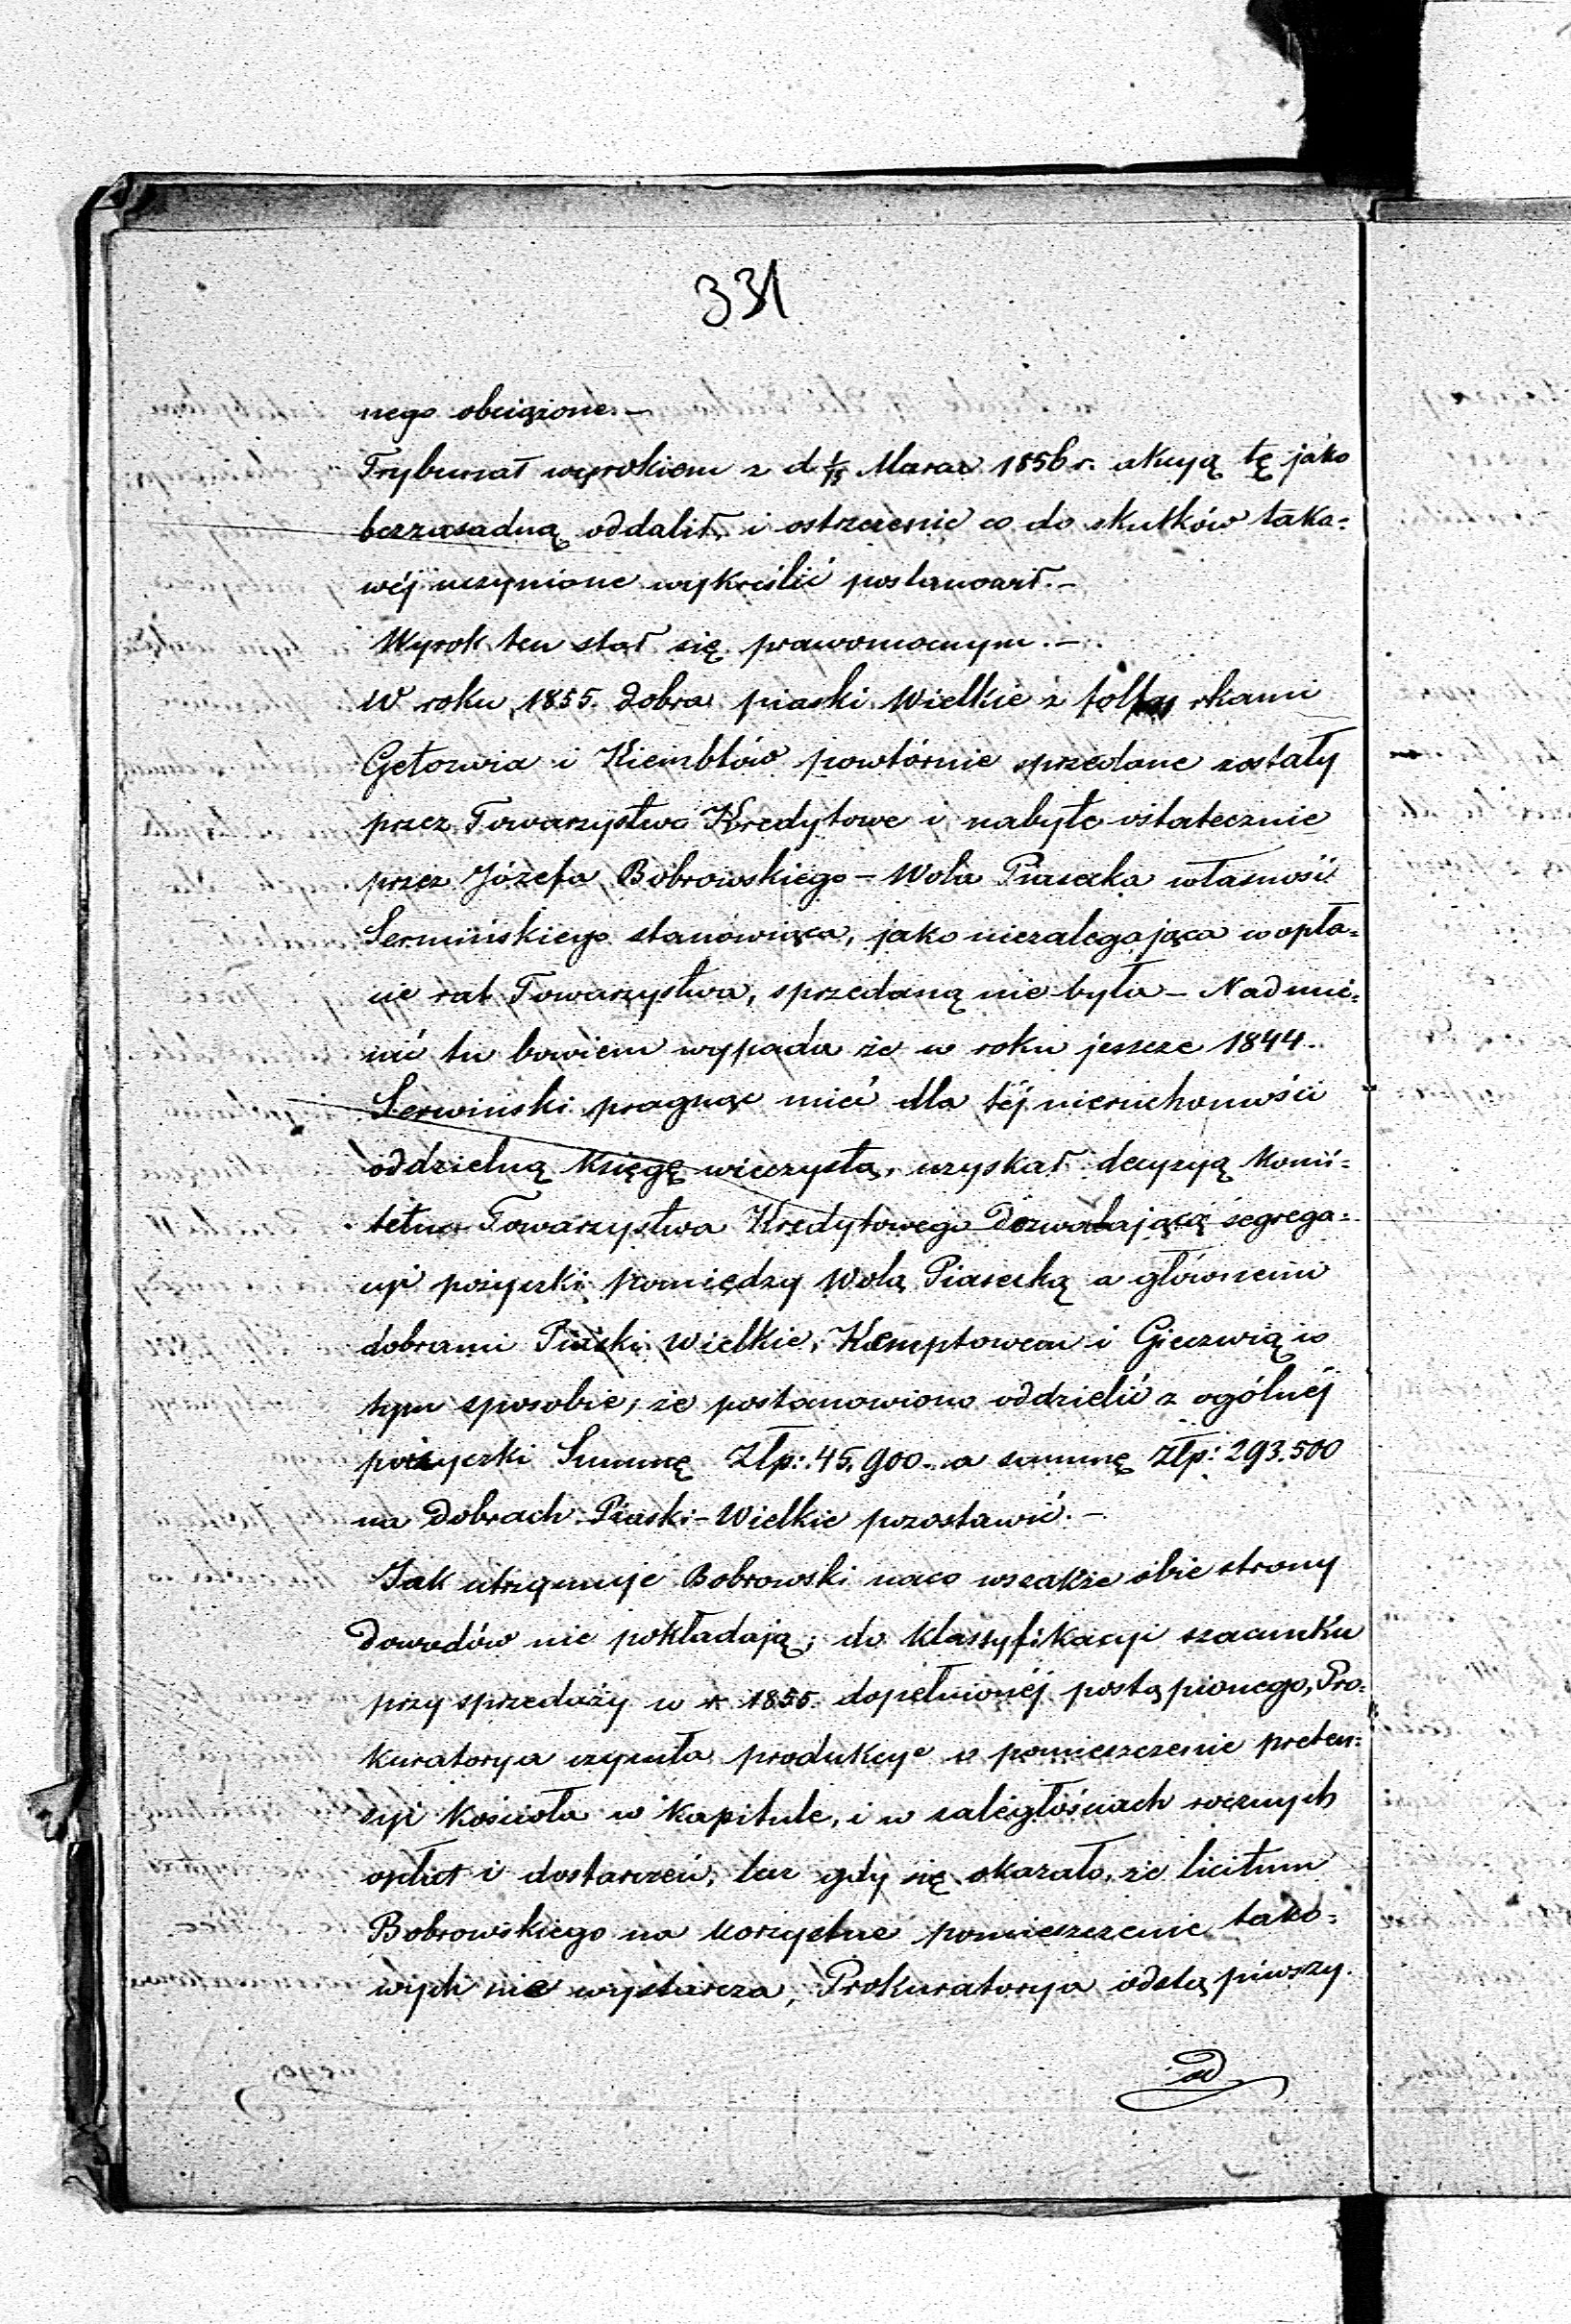 331
nego obciążone.—
Trybunał wyrokiem z d 1/13 Marca 1856 r. akcyą tę jako
bezzasadną oddalił, i ostrzeżenie co do skutków tako=
wéj uczynione wykreślić postanowił.—
Wyrok ten stał się prawomocnym.—
W roku 1855. dobra piaski Wielkie z folwarkami
Gełozwia i Kiembłów powtórnie sprzedane zostały
przez Towarzystwo Kredytowe i nabyte ostatecznie
przez Józefa Bobrowskiego — Wola Piasecka własność
Serwińskiego stanowiąca, jako niezalegająca w opła=
cie rat Towarzystwa, sprzedaną nie była — Nadmie=
nić tu bowiem wypada że w roku jeszcze 1844.
Serwiński pragnąc mieć dla téj nieruchomości
oddzielną Księgę wieczystą, uzyskał decyzyą Komi=
tetu Towarzystwa Kredytowego dozwalającą segrega=
cyi pożyczki pomiędzy Wolą Piasecką a głównemi
dobrami Piaski Wielkie, Kemptowem i Gieczwią w
tym sposobie, że postanowiono oddzielić z ogólnéj
pożyczki Summę Złp: 45,900. a summę Złp: 293.500
na Dobrach Piaski-Wielkie pozostawić.—
Jak utrzymuje Bobrowski naco wszakże obie strony
Dowodów nie pokładają, do Klassyfikacyi szacunku
przy sprzedaży w r. 1855. dopełnionéj postąpionego, Pro=
kuratorya czyniła produkcye o pomieszczenie preten=
syi Kościoła w Kapitule, i w zaległościach rocznych
opłat i dostarczeń, lecz gdy się okazało, że licitum
Bobrowskiego na korzystne pomieszczenie tako=
wych nie wystarcza, Prokuratorya odstąpiwszy.
od